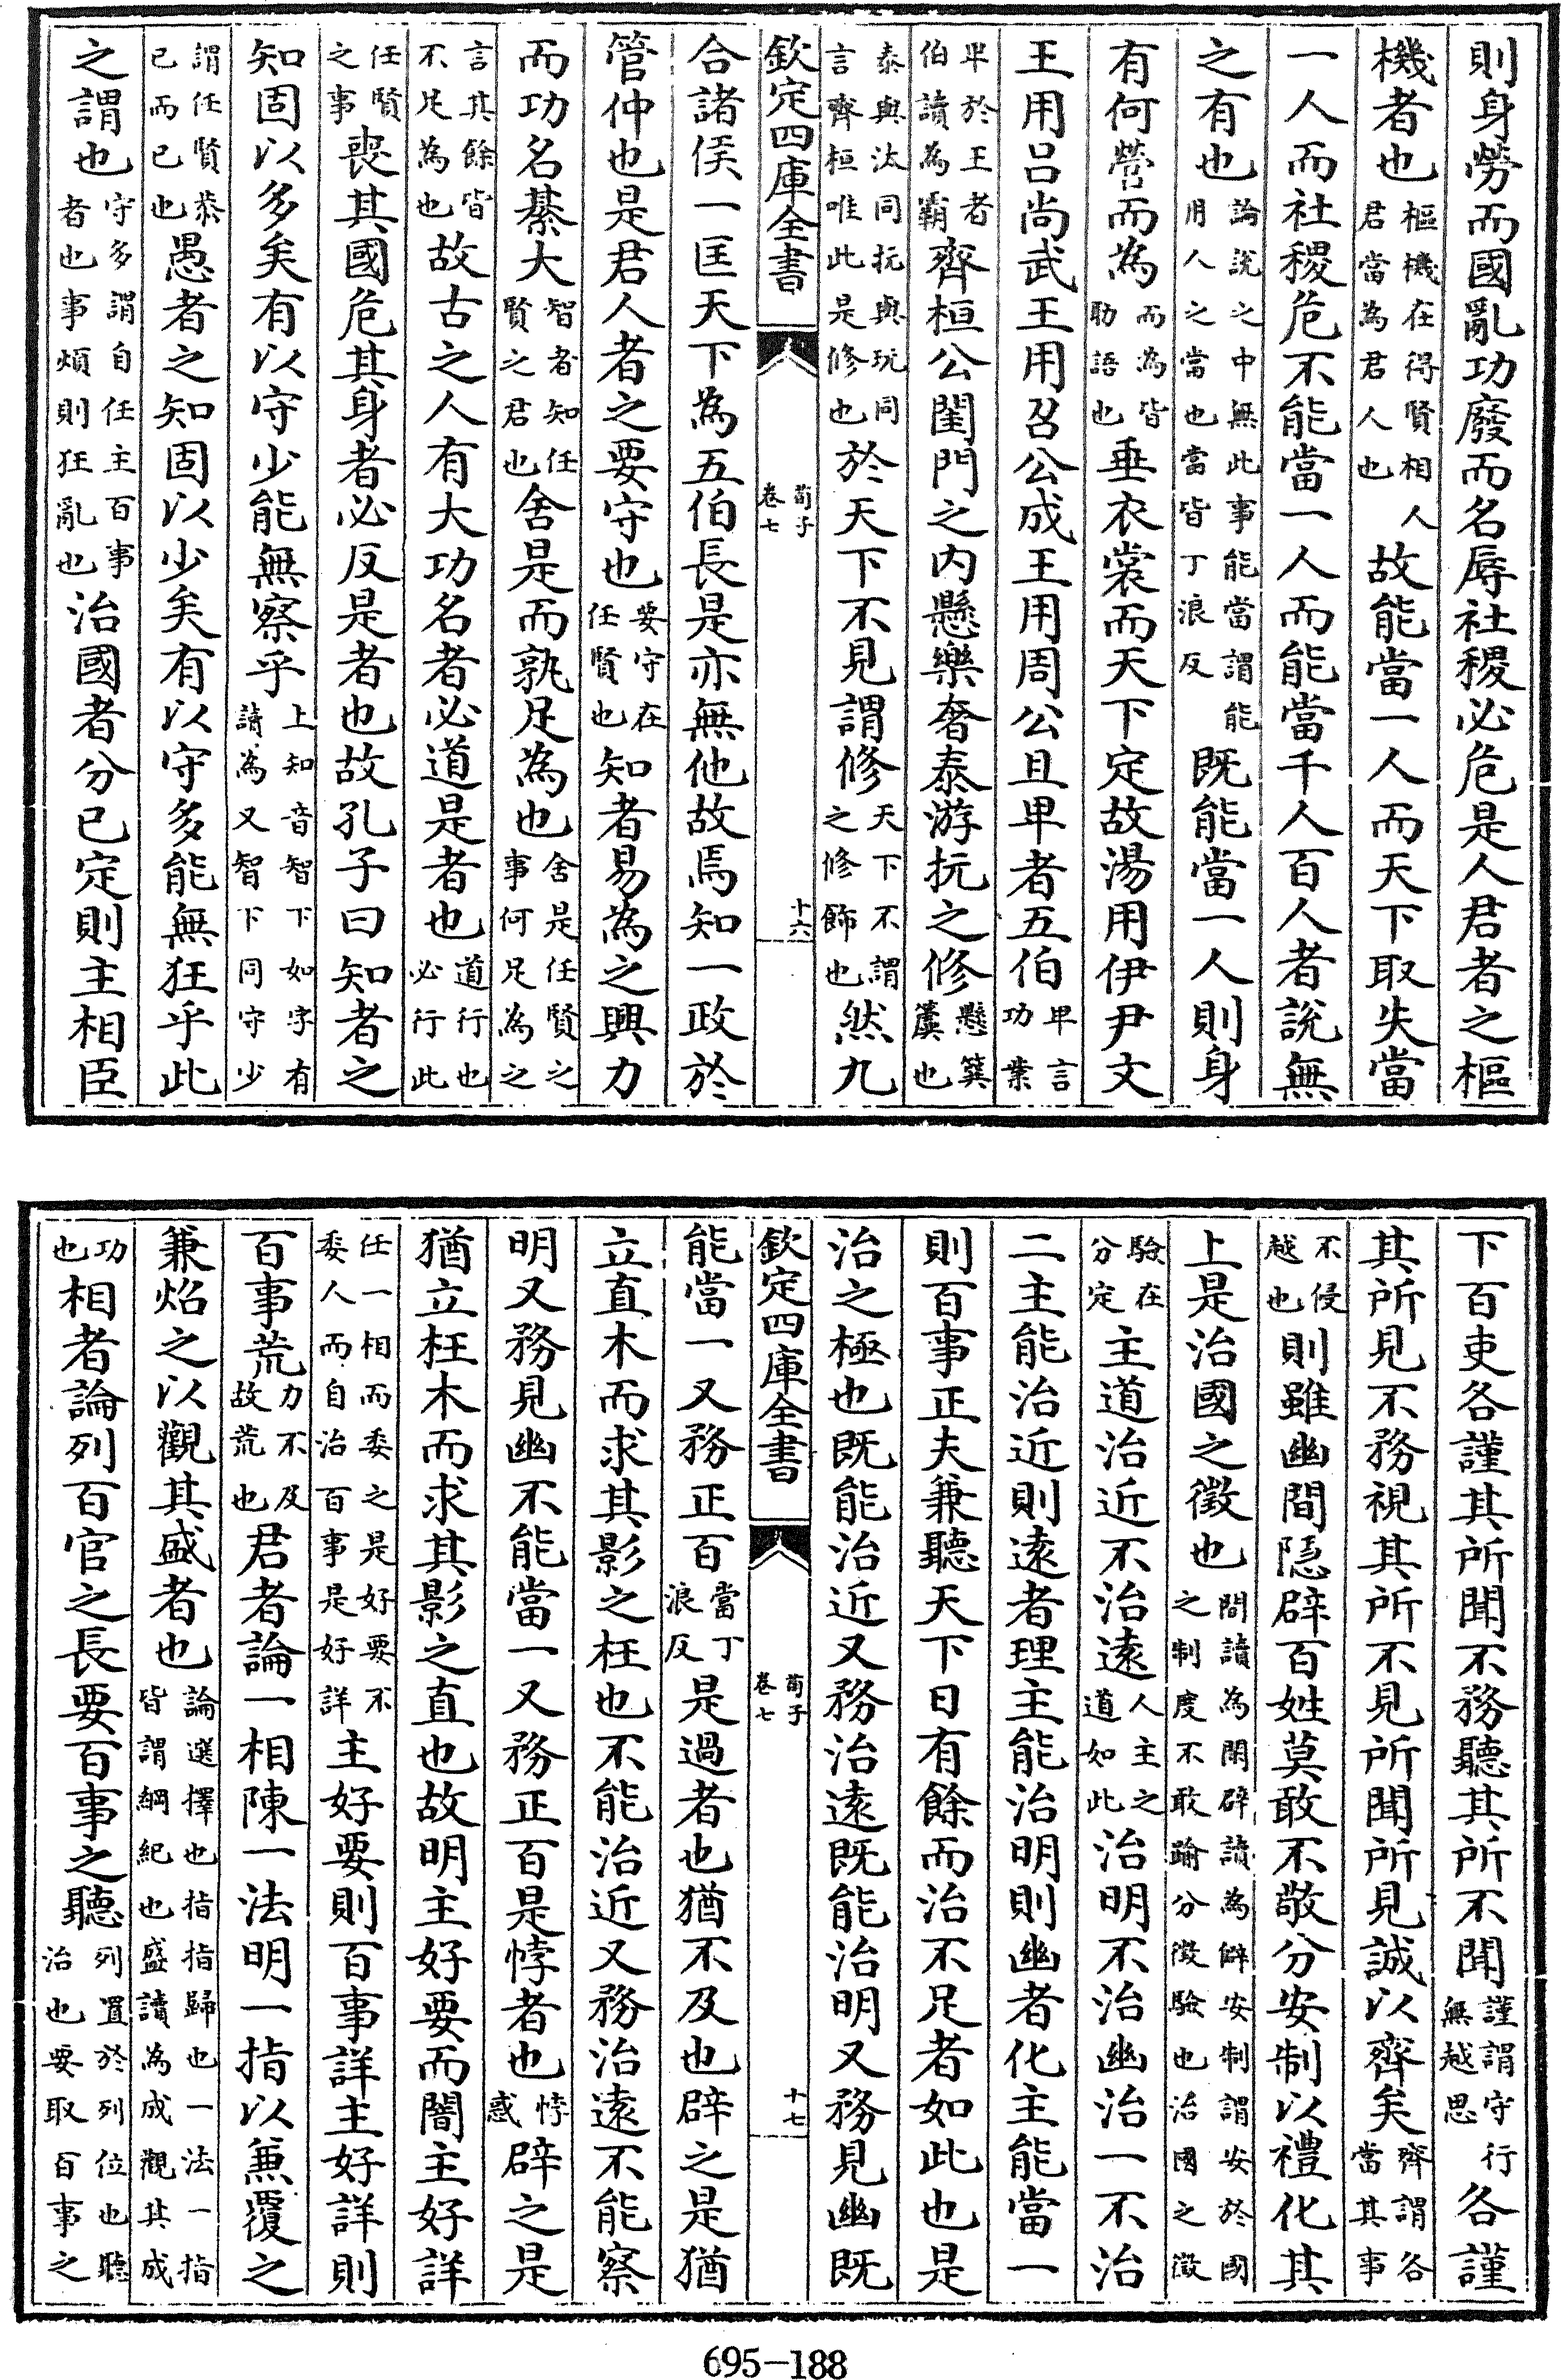 則身勞而國亂功廢而名辱社稷必危是人君者之樞
機者也樞機在得賢相人君當為君人也故能當一人而天下取失當
一人而社稷危不能當一人而能當千人百人者說無
之有也論說之中無此事能當謂能用人之當也當皆丁浪反既能當一人則身
有何營而為而為皆助語也垂衣裳而天下定故湯用伊尹文
王用呂尚武王用召公成王用周公旦卑者五伯卑言功業
卑於王者伯讀為霸齊桓公閨門之內懸樂奢泰游抏之修懸簨簴也
泰與汰同抏與玩同言齊桓唯此是修也於天下不見謂修天下不謂之修飾也然九
欽定四庫全書 荀子卷七 十六
合諸侯一匡天下為五伯長是亦無他故焉知一政於
管仲也是君人者之要守也要守在任賢也知者易為之興力
而功名綦大智者知任賢之君也舍是而孰足為也舍是任賢之事何足為之
言其餘皆不足為也故古之人有大功名者必道是者也道行也必行此
任賢之事喪其國危其身者必反是者也故孔子曰知者之
知固以多矣有以守少能無察乎上知音智下如字有讀為又智下同守少
謂任賢恭己而已也愚者之知固以少矣有以守多能無狂乎此
之謂也守多謂自任主百事者也事煩則狂亂也治國者分已定則主相臣
下百吏各謹其所聞不務聽其所不聞謹謂守行無越思各謹
其所見不務視其所不見所聞所見誠以齊矣齊謂各當其事
不侵越也則雖幽閒隱辟百姓莫敢不敬分安制以禮化其
上是治國之徵也閒讀為閑辟讀為僻安制謂安於國之制度不敢踰分徵驗也治國之徵
驗在分定主道治近不治遠人主之道如此治明不治幽治一不治
二主能治近則遠者理主能治明則幽者化主能當一
則百事正夫兼聽天下日有餘而治不足者如此也是
治之極也既能治近又務治遠既能治明又務見幽既
欽定四庫全書 荀子卷七 十七
能當一又務正百當丁浪反是過者也猶不及也辟之是猶
立直木而求其影之枉也不能治近又務治遠不能察
明又務見幽不能當一又務正百是悖者也悖惑辟之是
猶立枉木而求其影之直也故明主好要而闇主好詳
任一相而委之是好要不委人而自治百事是好詳主好要則百事詳主好詳則
百事荒力不及故荒也君者論一相陳一法明一指以兼覆之
兼炤之以觀其盛者也論選擇也指指歸也一法一指皆謂綱紀也盛讀為成觀其成
功也相者論列百官之長要百事之聽列置於列位也聽治也要取百事之
695-188